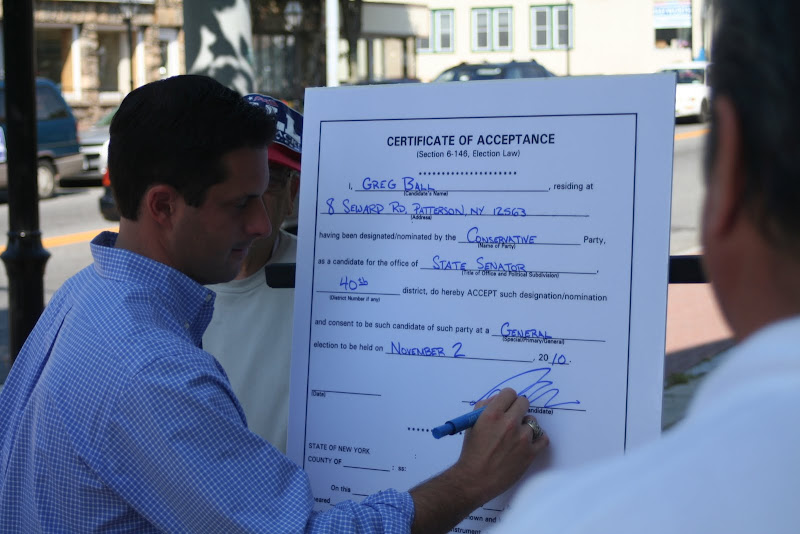 CERTIFICATE OF ACCEPTANCE
(Section 6-146, Election Law)
I, GREG BALL, residing at
(Candidate's Name)
8 SEWARD RD, PATTERSON, NY 12563
(Address)
having been designated/nominated by the CONSERVATIVE Party,
(Name of Party)
as a candidate for the office of STATE SENATOR,
(Title of Office and Political Subdivision)
40th district, do hereby ACCEPT such designation/nomination
(District Number if any)
and consent to be such candidate of such party at a GENERAL
(Special/Primary/General)
election to be held on NOVEMBER 2, 2010.
(Date)
STATE OF NEW YORK
COUNTY OF : ss:
On this